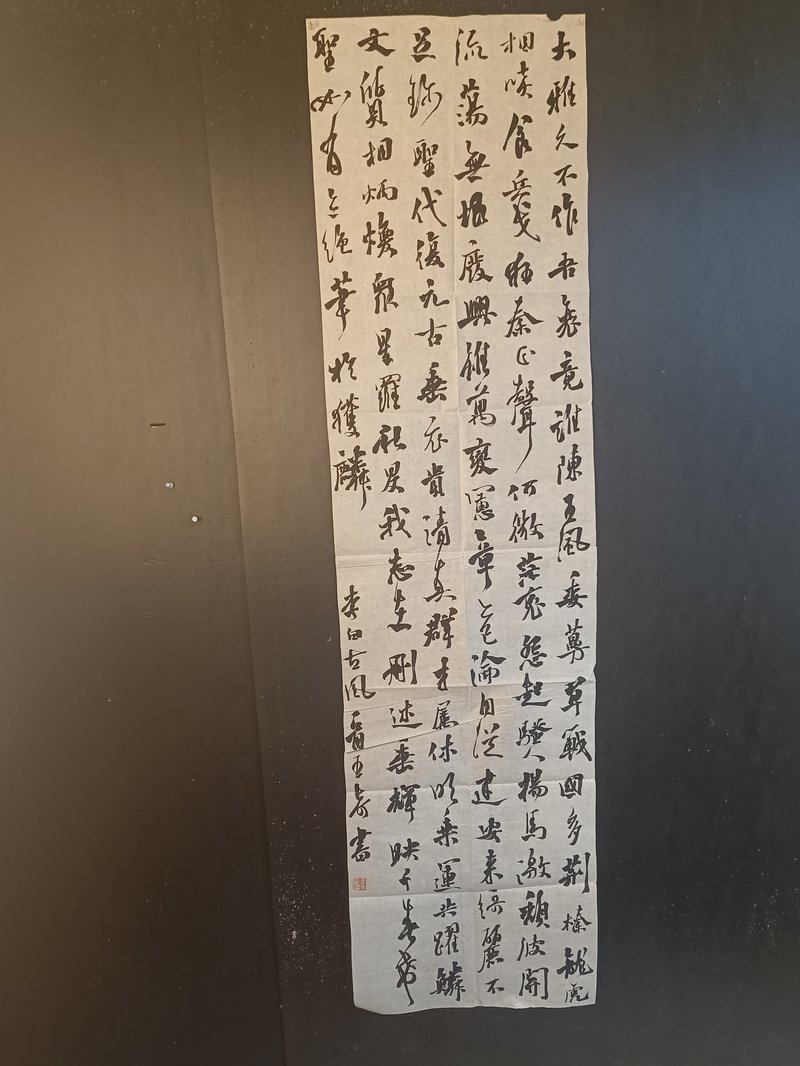 大雅久不作吾衰竟誰陳王風委蔓草戰國多荆榛龍虎
相啖食兵戈狂秦正聲何微茫哀怨起騷人揚馬激頹波開
流蕩無垠廢興雖萬變憲章亦已淪自從建安来綺麗不
足珍聖代復元古垂衣貴清真群才屬休明乘運共躍鱗
文質相炳煥眾星羅秋旻我志在刪述垂輝映千春希
聖如有立絕筆於獲麟
李白古風一首書